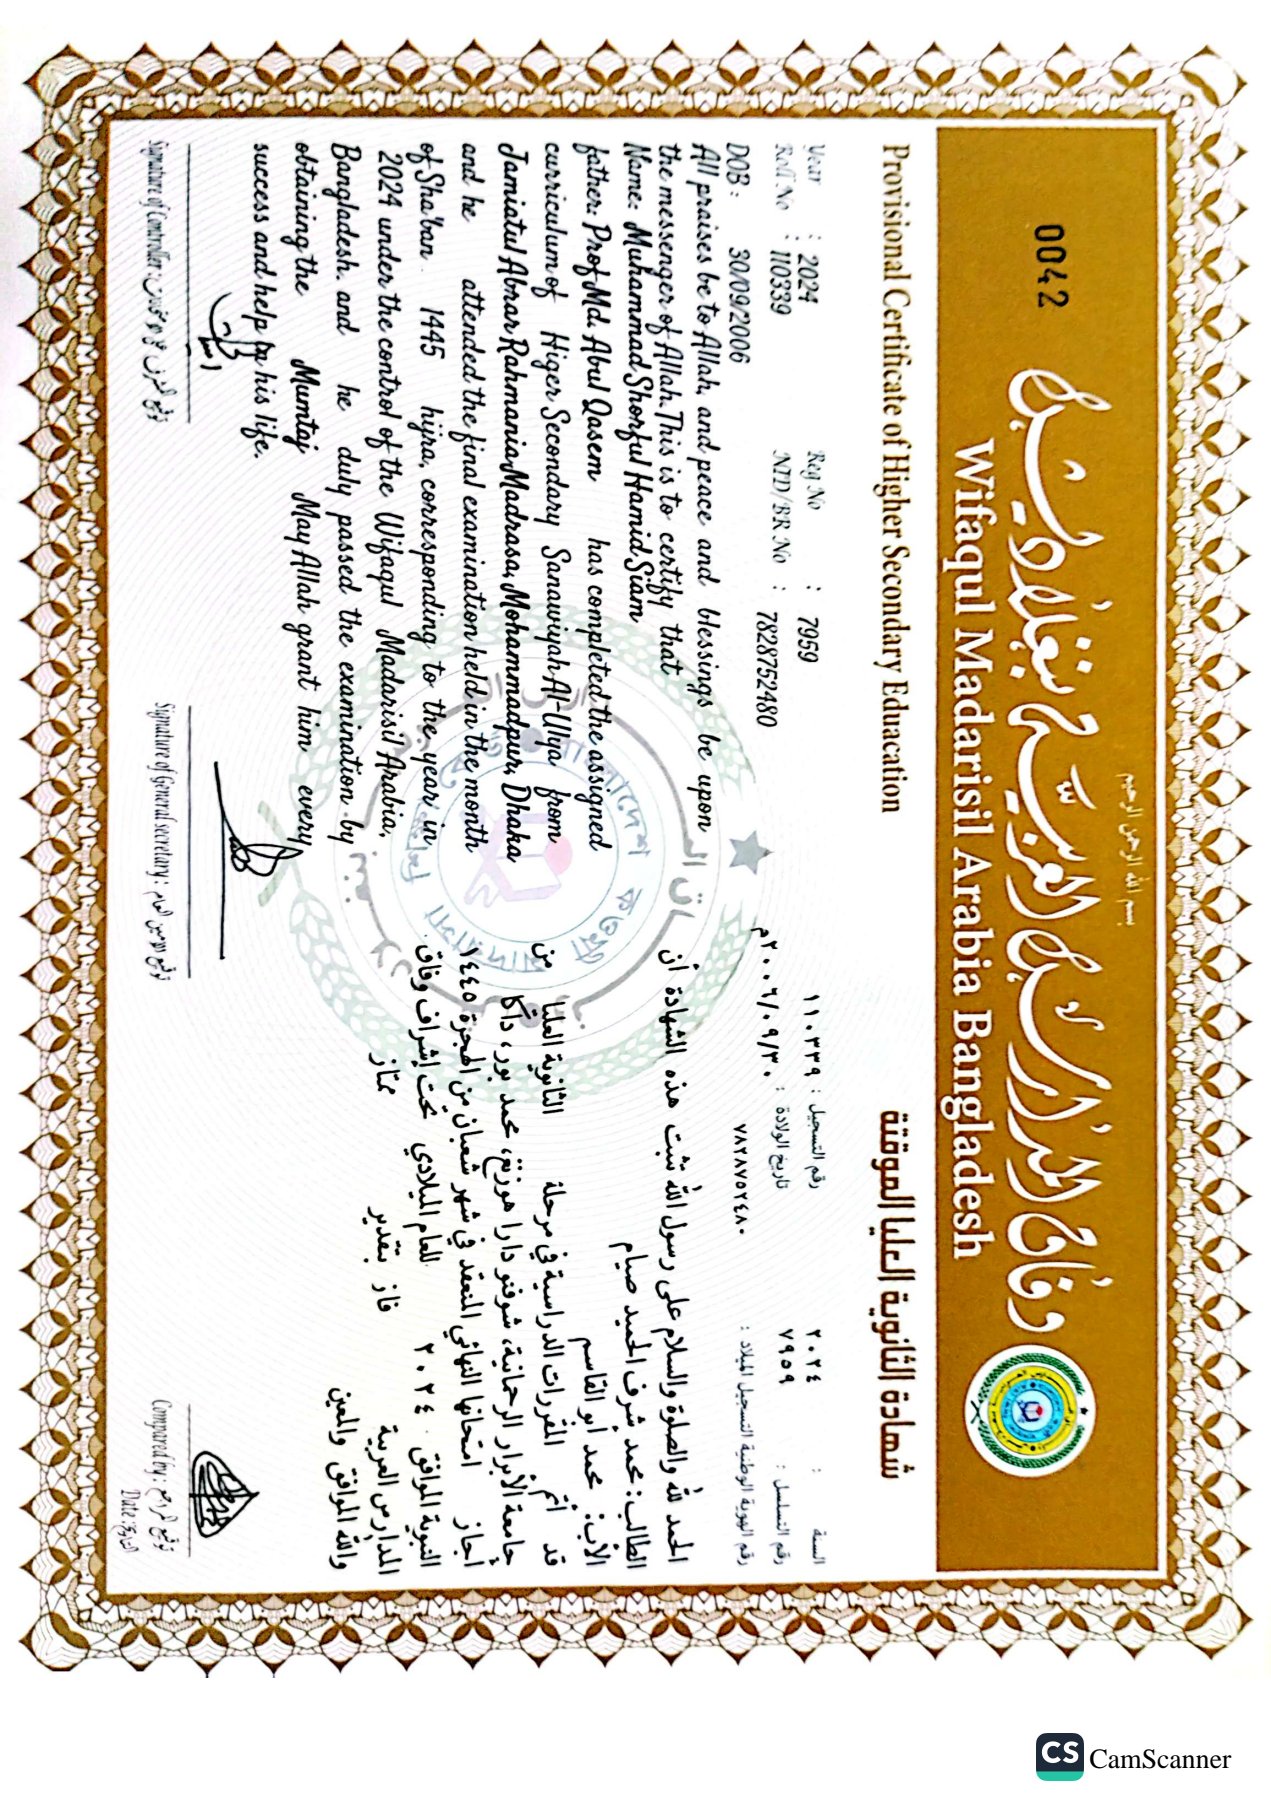 بسم الله الرحمن الرحيم
0042
وفاق المدارس العربية بنغلاديش
Wifaqul Madarisil Arabia Bangladesh
Provisional Certificate of Higher Secondary Eduacation
شهادة الثانوية العليا الموقتة
Year : 2024 Reg No : 7959
Roll No : 110339 NID/BR No : 7828752480
DOB : 30/09/2006
All praises be to Allah, and peace and blessings be upon
the messenger of Allah. This is to certify that
Name: Muhammad Shorful Hamid Siam
father: Prof. Md. Abul Qasem has completed the assigned
curriculum of Higer Secondary Sanawiyah Al-Ulya from
Jamiatul Abrar Rahmania Madrasa, Mohammadpur, Dhaka
and he attended the final examination held in the month
of Sha'ban 1445 hijra, corresponding to the year in
2024 under the control of the Wifaqul Madarisil Arabia,
Bangladesh. and he duly passed the examination by
obtaining the Mumtaj May Allah grant him every
success and help in his life.
السنة : ٢٠٢٤ رقم التسجيل : ١١٠٣٣٩
رقم التسلسل : ٧٩٥٩ تاريخ الولادة : ٢٠٠٦/٠٩/٣٠م
رقم الهوية الوطنية التسجيل الميلاد : ٧٨٢٨٧٥٢٤٨٠
الحمد لله والصلوة والسلام على رسول الله تثبت هذه الشهادة أن
الطالب: محمد شرف الحميد صيام
الأب: محمد ابو القاسم
قد أتم المقررات الدراسية في مرحلة الثانوية العليا من
جامعة الأبرار الرحمانية، شوفنو دارا هوزنغ، محمد بور، داكا
اجاز امتحانها النهائي المنعقد في شهر شعبان من الهجرة ١٤٤٥
النبوية الموافق ٢٠٢٤ للعام الميلادي تحت إشراف وفاق
المدارس العربية فاز بتقدير ممتاز
والله الموافق والمعين
Signature of Controller :
Signature of General secretary : توقيع الامين العام
Compared by : توقيع المراجع
Date : التاريخ
CS CamScanner